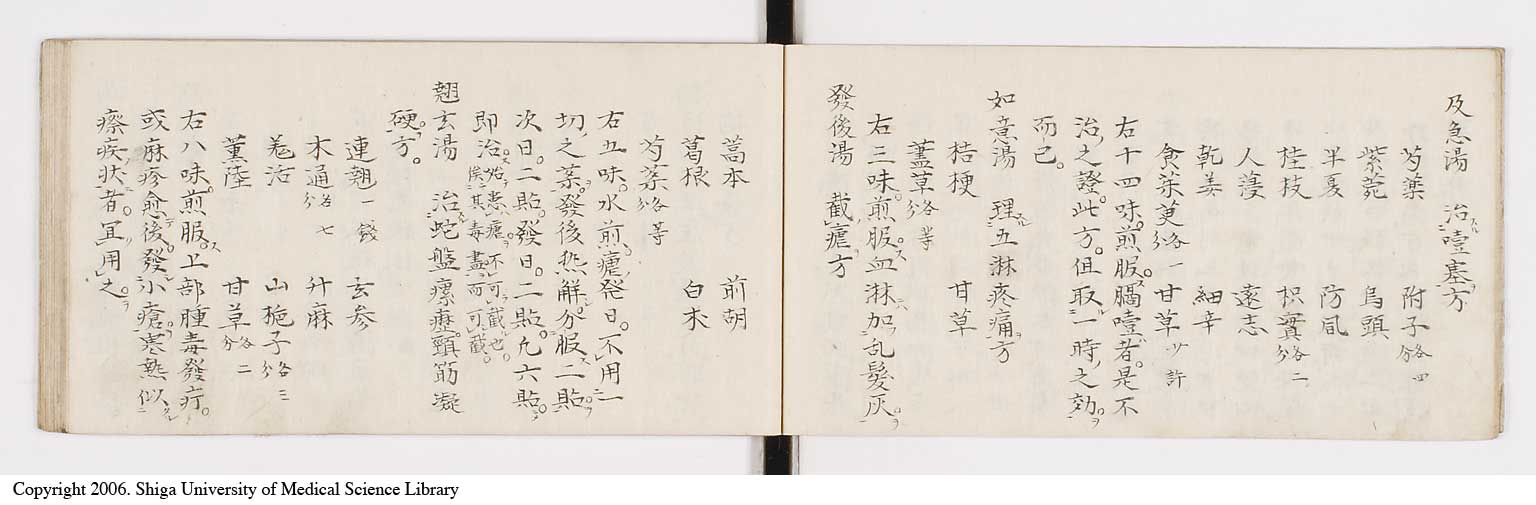 及急湯 治噎塞方
芍藥 附子各四分
紫菀 烏頭
半夏 防風
桂枝 枳實各二分
人蓡 遠志
乾姜 細辛
食茱萸各一分 甘草少許
右十四味。煎服。膈噎者。是不
治之證。此方。但取一時之効。
而已。
如意湯 理五淋疼痛方
桔梗 甘草
藎草各等分
右三味。煎服。血淋加乱髮灰。
發後湯 截瘧方
藁本 前胡
葛根 白朮
芍藥各等分
右五味。水煎。瘧発日。不用一
切之薬。發後熱解。分服二貼。
次日。二貼。發日。二貼。凡六貼。
即治。始患瘧。不可截也。俟其毒盡而可截。
翹玄湯 治蛇盤瘰癧。頸筋凝
硬方。
連翹一錢 玄参
木通各七分 升麻
羌活 山梔子各三分
薫陸 甘草各二分
右八味。煎服。上部腫毒發疔。
或麻疹愈後。發小瘡。寒熱似
瘵疾状者。宜用之。
Copyright 2006. Shiga University of Medical Science Library